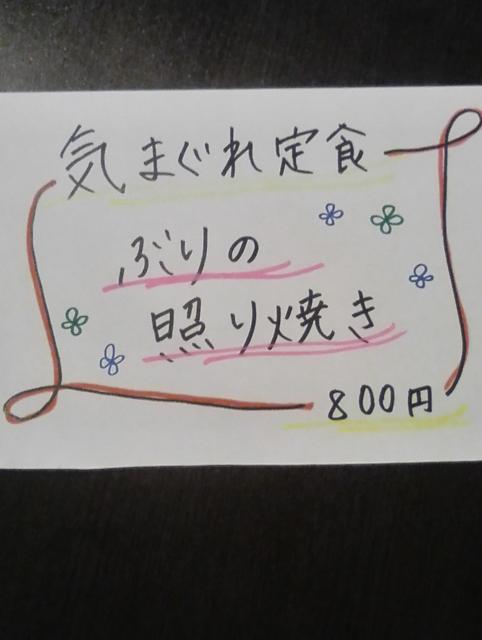 気まぐれ定食
ぶりの
照り焼き
800円